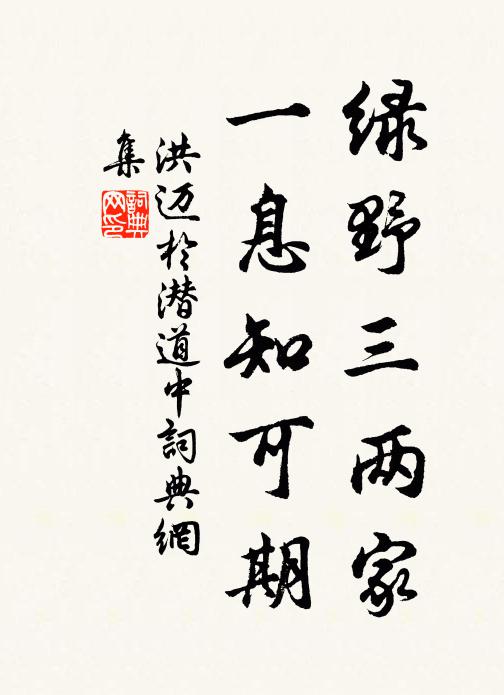 绿野三两家
一息知可期
洪迈於潜道中詞典網
集
詞典
网印